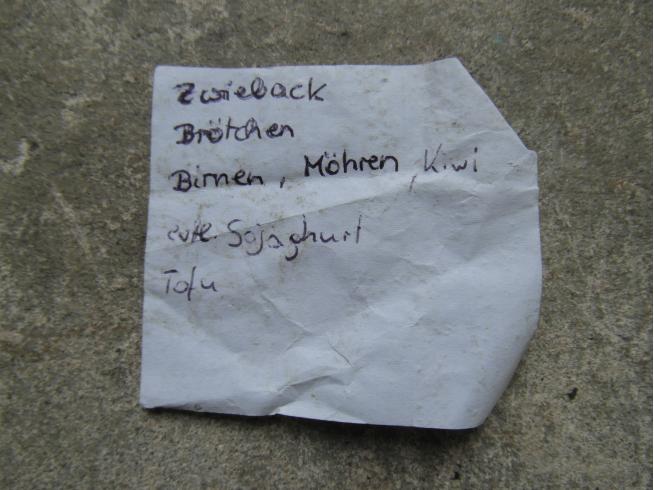 Zwieback
Brötchen
Birnen, Möhren, Kiwi
evtl. Sojaghurt
Tofu